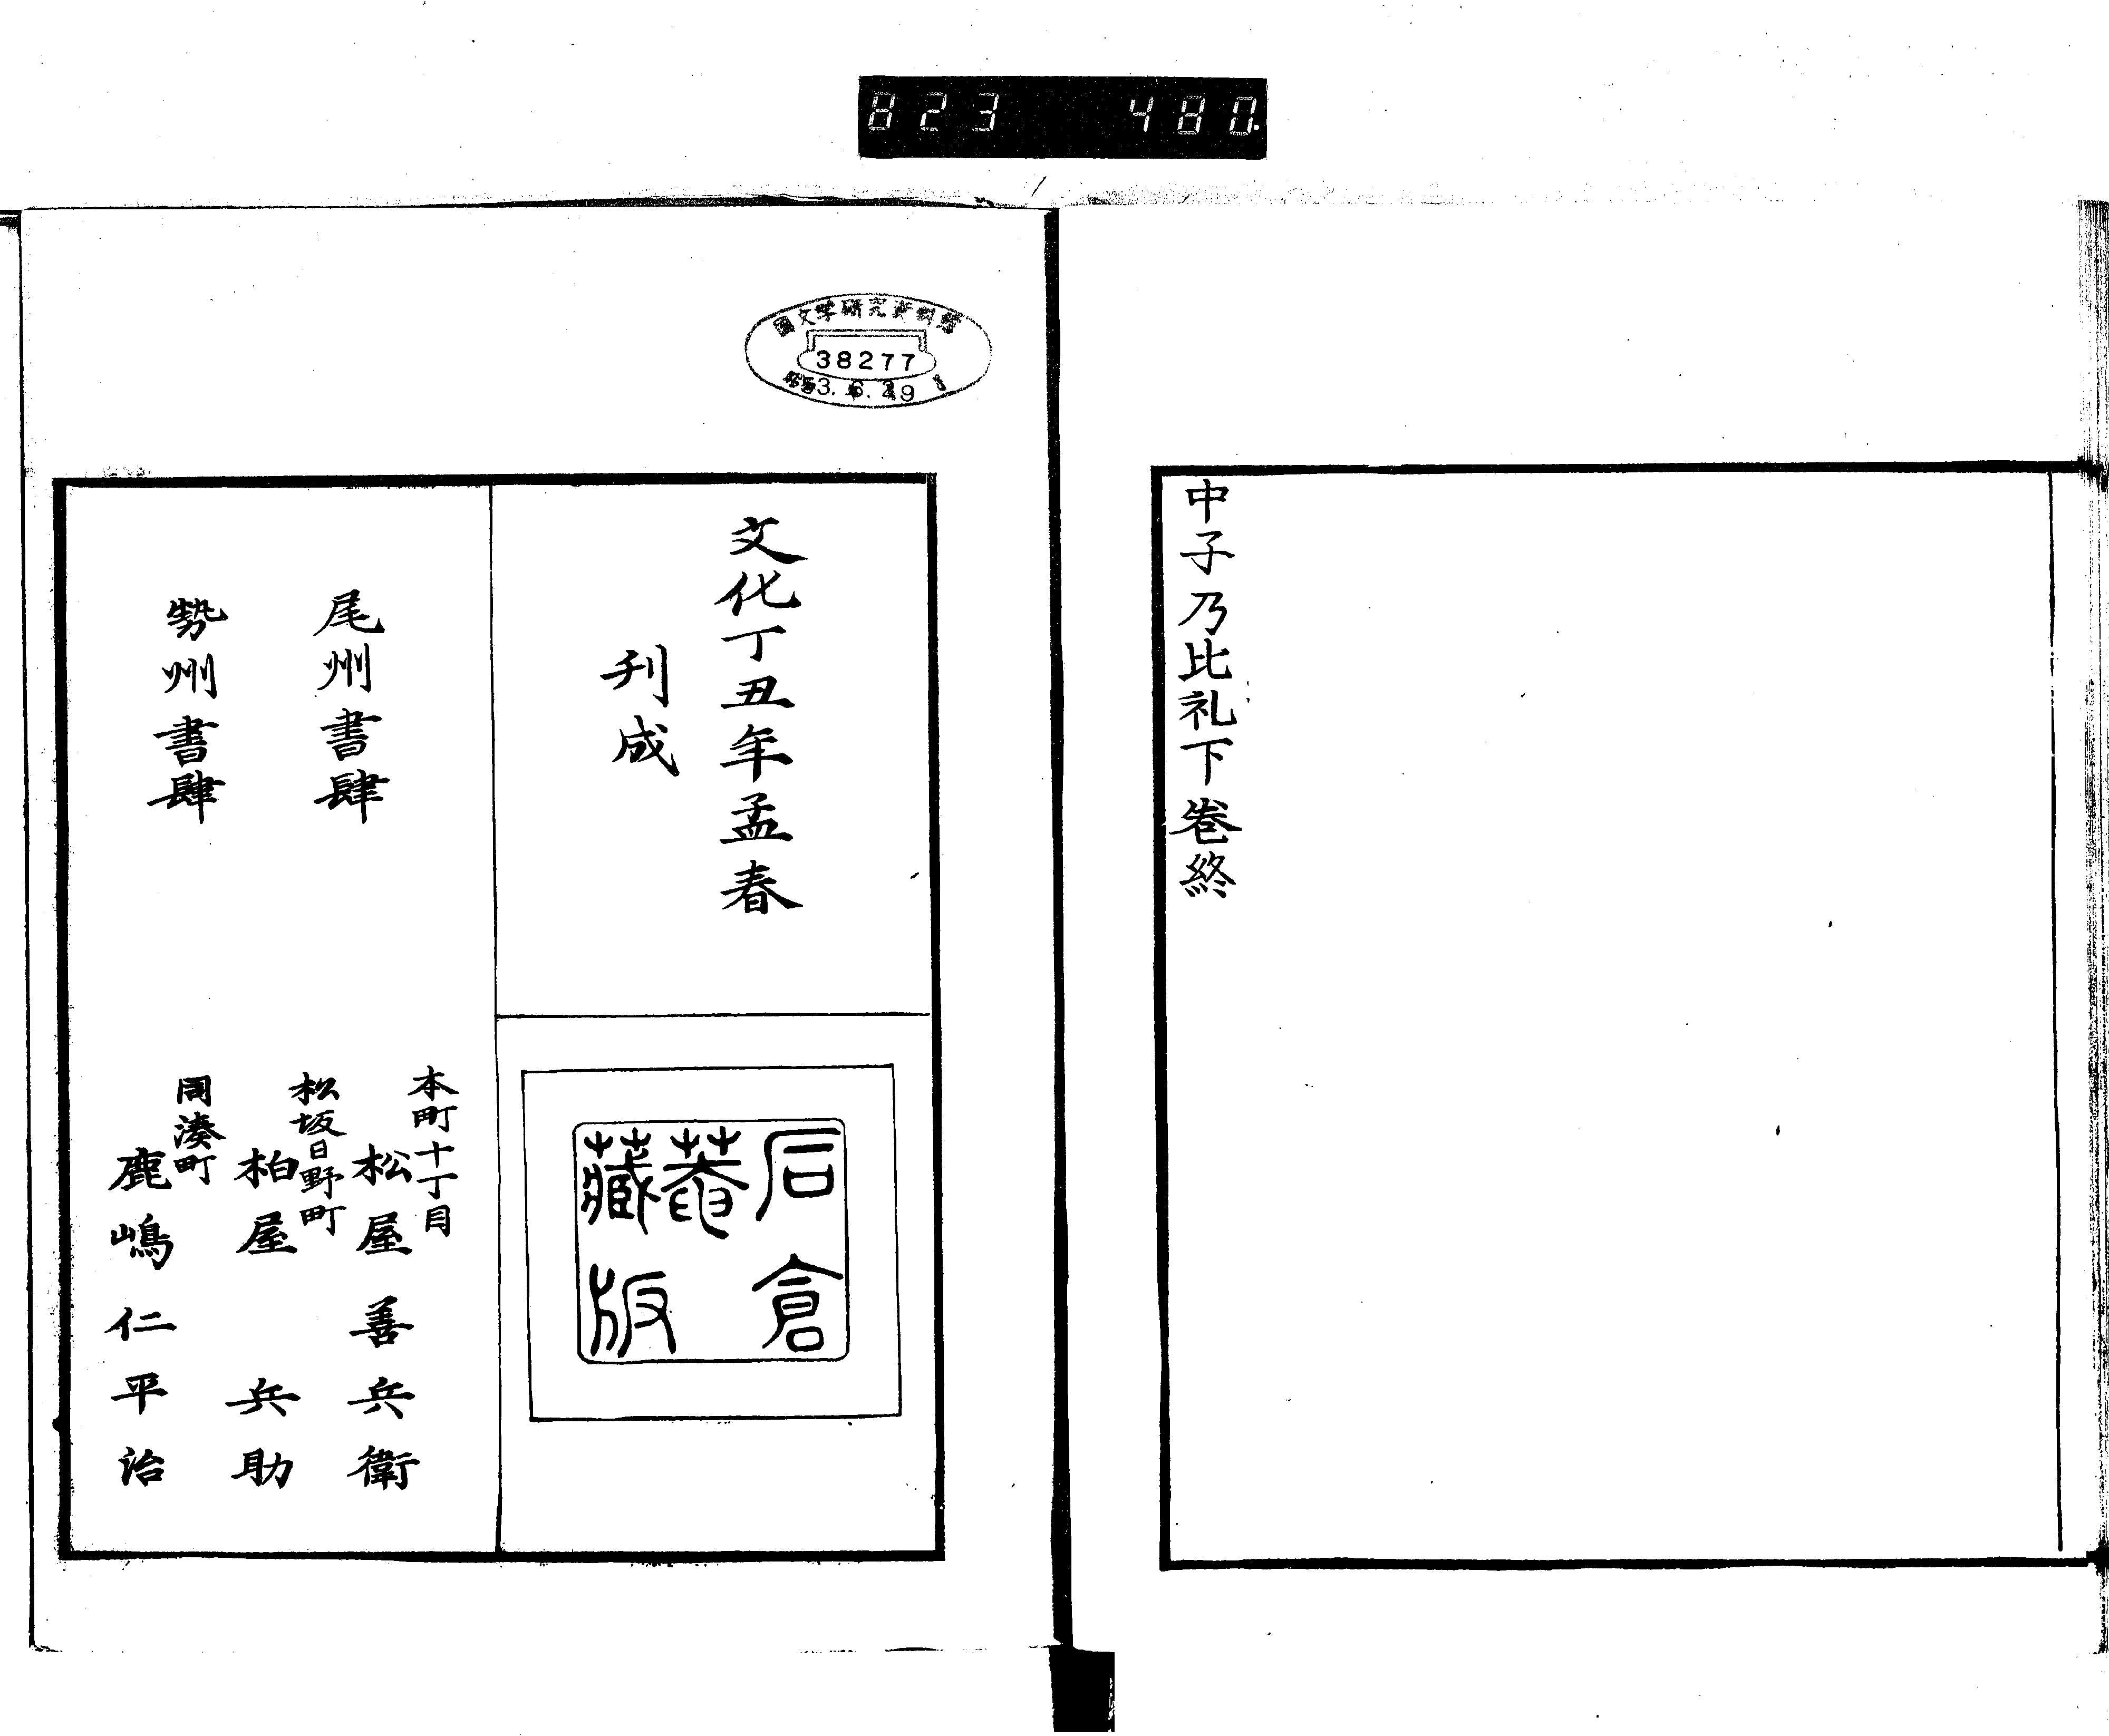 823 480.
中子乃比礼下巻終
國文学研究資料館
38277
昭53.6.29
文化丁丑年孟春
刋成
后倉
菴
藏版
尾州書肆
本町十丁目
松屋善兵衛
勢州書肆
松坂日野町
柏屋兵助
同湊町
鹿嶋仁平治